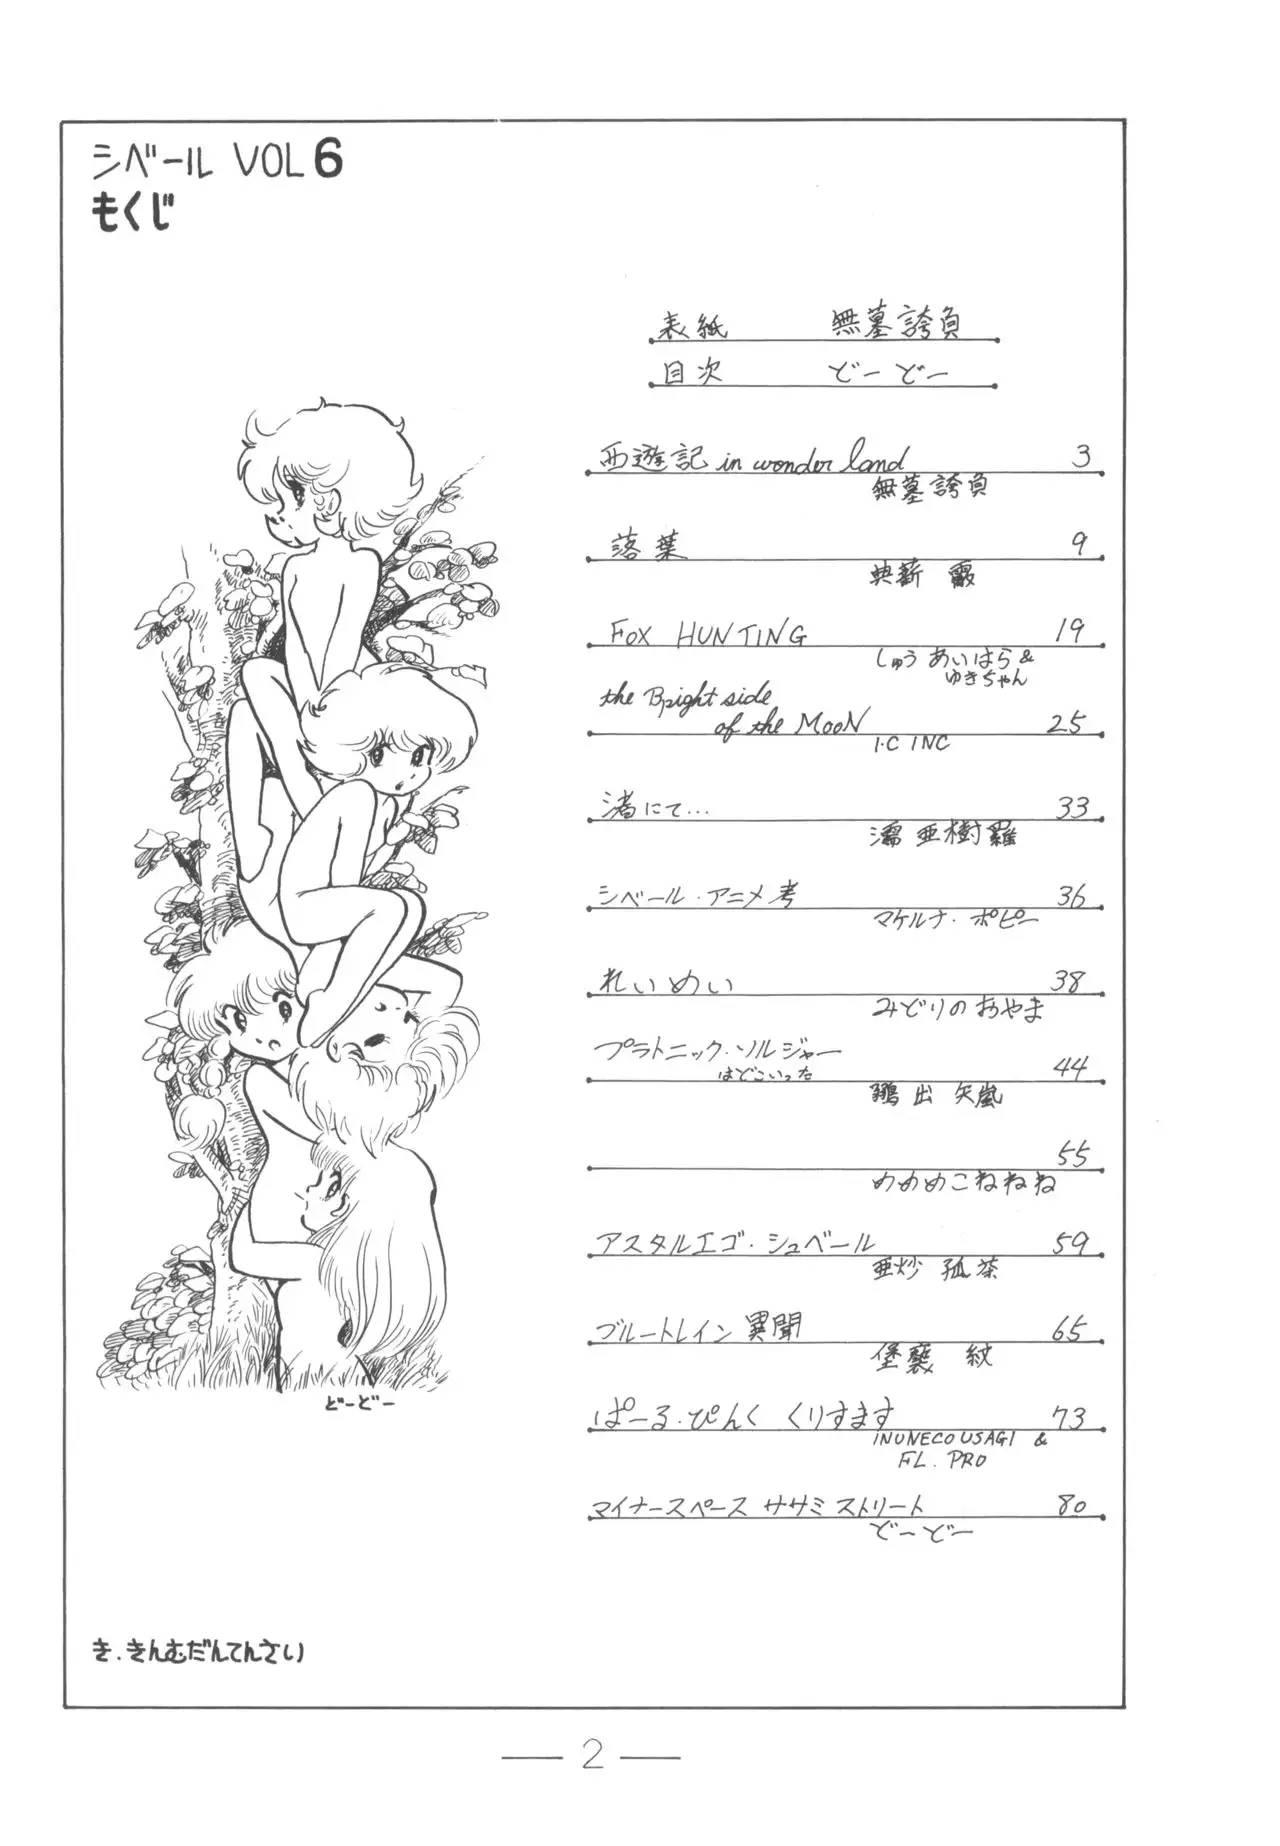 シベール VOL 6
もくじ
表紙 無墓誇負
目次 どーどー
西遊記 in wonder land 3
無墓誇負
落葉 9
典薪 霰
FOX HUNTING 19
しゅう あいはら &
ゆきちゃん
the Bright side
of the MooN 25
I.C INC
渚にて… 33
濡 亜樹羅
シベール・アニメ考 36
マケルナ・ポピー
れいめい 38
みどりの あやま
プラトニック・ソルジャー
はどこいった 44
出 矢嵐
55
めめめこねねね
アスタルエゴ・シュベール 59
亜炒 孤茶
ブルートレイン異聞 65
紋
ぱーる・ぴんく くりすます 73
INUNECOUSAGI &
FL. PRO
マイナースペース ササミストリート 80
どーどー
どーどー
き.きんむだんてんさい
— 2 —